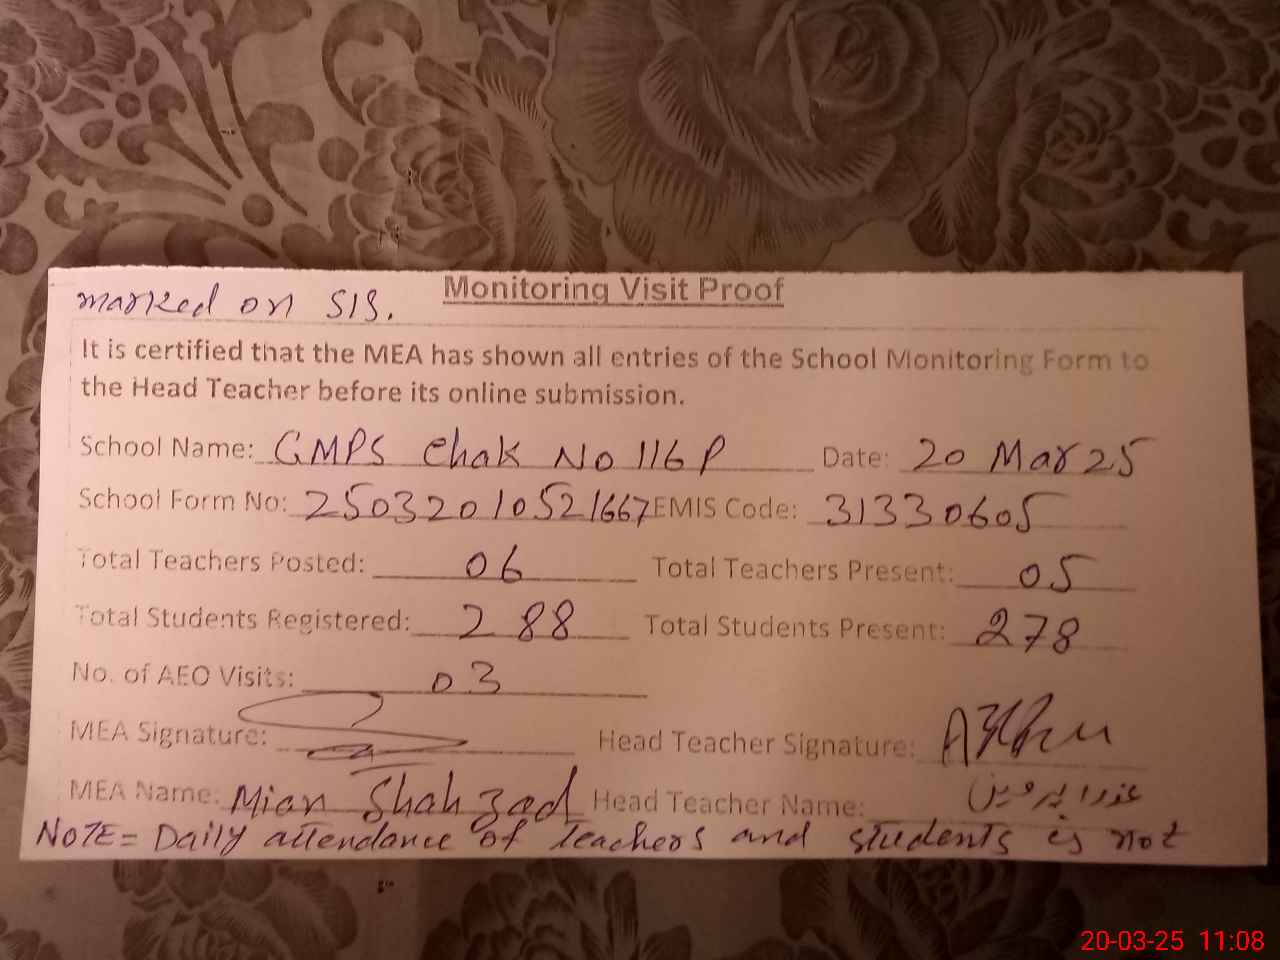 Monitoring Visit Proof
marked on SIS.
It is certified that the MEA has shown all entries of the School Monitoring Form to
the Head Teacher before its online submission.
School Name: GMPS Chak No 116 P Date: 20 Mar 25
School Form No: 25032010521667 EMIS Code: 31330605
Total Teachers Posted: 06 Total Teachers Present: 05
Total Students Registered: 288 Total Students Present: 278
No. of AEO Visits: 03
MEA Signature: Head Teacher Signature:
MEA Name: Mian Shahzad Head Teacher Name: عذرا پروین
NOTE = Daily attendance of Teachers and students is not
20-03-25 11:08